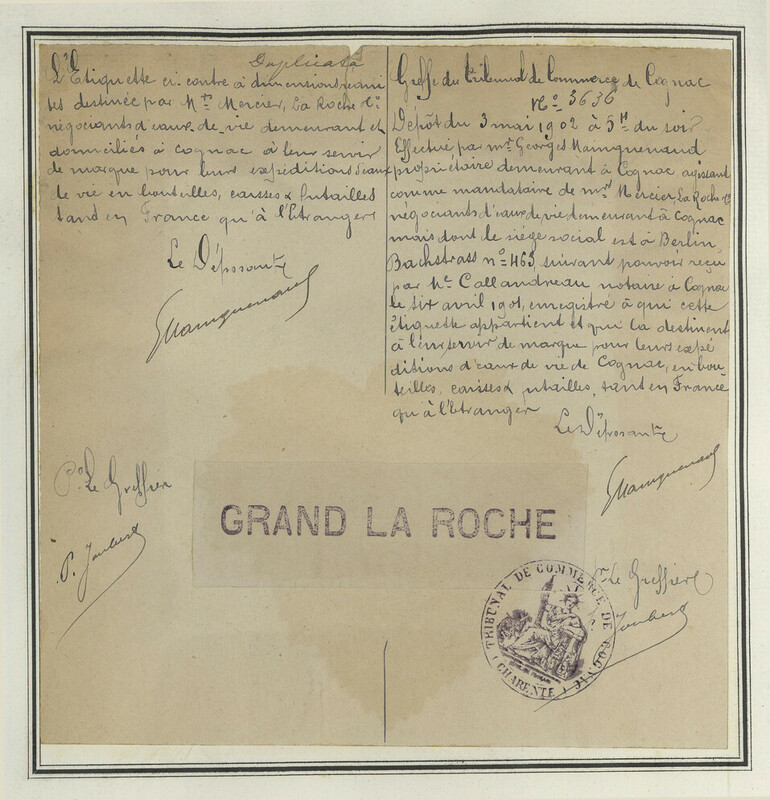 Duplicata
L'Etiquette ci-contre à dimensions réun
tes destinée par Mrs Mercier, La Roche &Cie
négociants d'eaux-de-vie demeurant et
domiciliés à Cognac à leur servir
de marque pour leurs expéditions d'eaux
de vie en bouteilles, caisses & futailles
tant en France qu'à l'Etranger
Le Déposant
GMainguenaud
Pr Le Greffier
P. Joubert
Greffe du tribunal de Commerce de Cognac
No 3636
Dépôt du 3 mai 1902 à 5H du soir
Effectué par Mr Georges Mainguenaud
propriétaire demeurant à Cognac agissant
comme mandataire de Mrs Mercier, La Roche &Cie
négociants d'eaux de vie demeurant à Cognac
mais dont le siège social est à Berlin,
Bachstrass no 463, suivant pouvoir reçu
par Me Callandreau notaire à Cognac
le six avril 1901, enregistré à qui cette
étiquette appartient et qui la destinent
à leur servir de marque pour leurs expé
ditions d'eaux de vie de Cognac, en bou-
teilles, caisses & futailles, tant en France
qu'à l'Etranger
Le Déposant
GMainguenaud
GRAND LA ROCHE
Pr Le Greffier
Joubert
TRIBUNAL DE COMMERCE DE COGNAC
(CHARENTE)